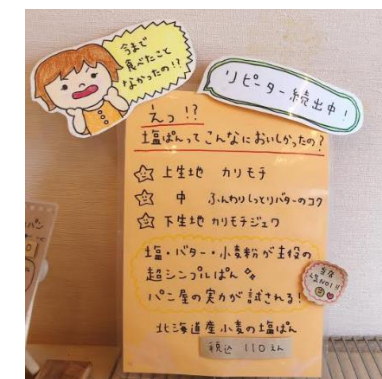 今まで
食べたこと
なかったの!?
リピーター続出中!
えっ!?
塩ぱんってこんなにおいしかったの?
上生地 カリモチ
中 ふんわりしっとりバターのコク
下生地 カリモチジュワ
塩・バター・小麦粉が主役の
超シンプルぱん
パン屋の実力が試される!
当店
人気NO1!!
北海道産小麦の塩ぱん
税込 110えん
パン